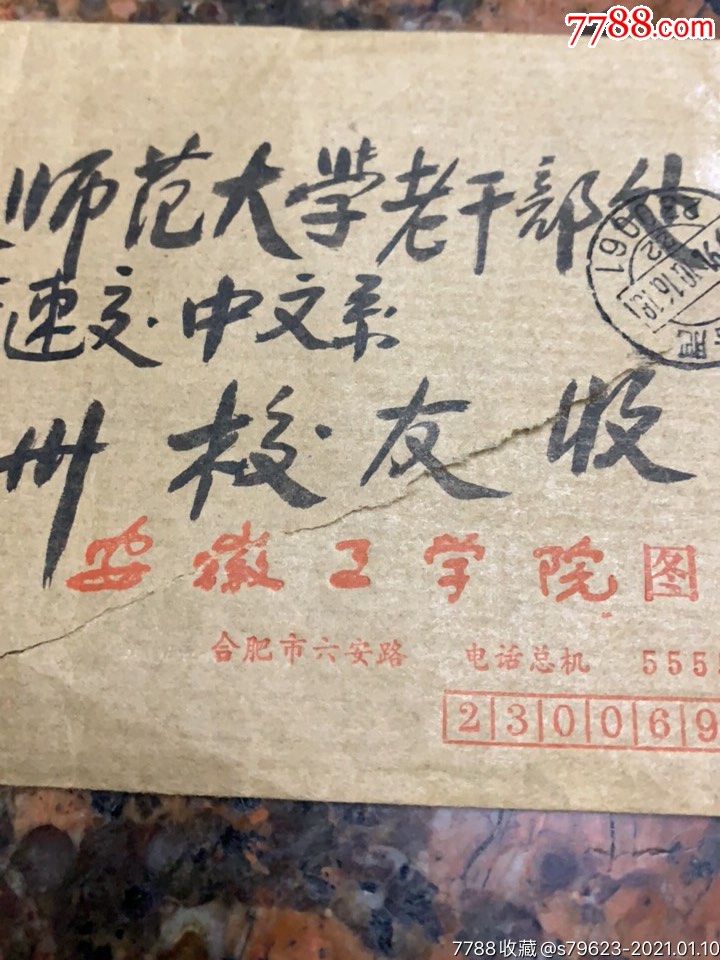 7788.com
师范大学老干部处
速交中文系
州 校友收
安徽工学院图
合肥市六安路 电话总机 555
230069
7788收藏@s79623-2021.01.10